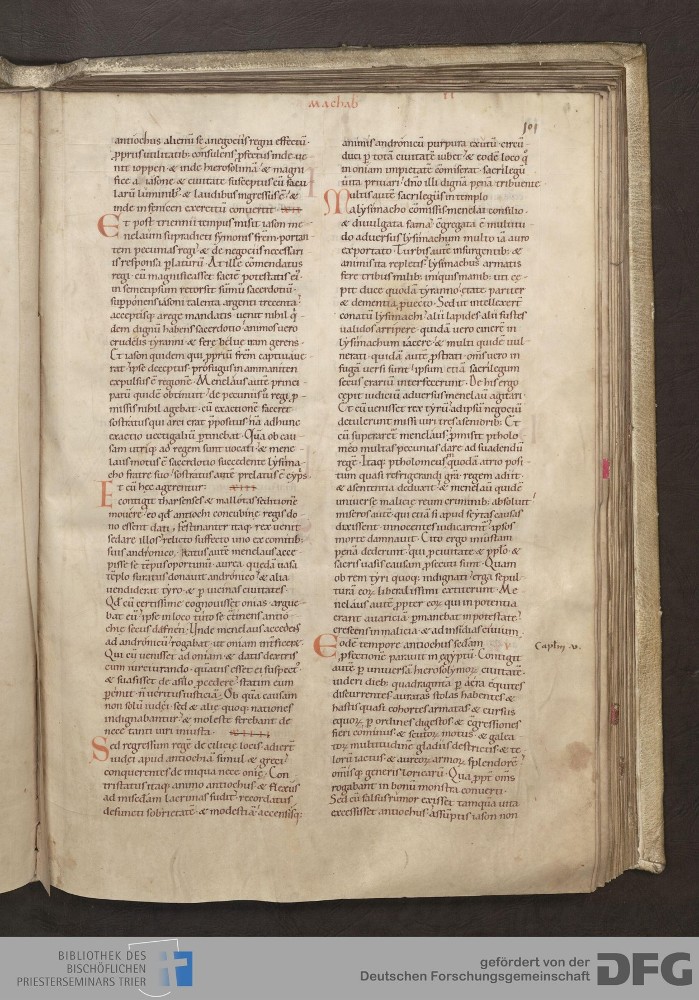 Machab
II
101
antiochus alienū se anegociis regni effectū.
ꝓpriis utilitatib; consulens ꝓfectus inde ue-
nit ioppen. & inde hierosolimā. & magni
fice a iasone & ciuitate susceptus cū facu
larū luminib; & laudibus ingressus ē. &
inde infenicen exercitū conuertit.
Et post triennii tempus misit iason me-
nelaum supradicti symonis frēm portan
tem pecunias regi. & de negociis necessari
is responsa ꝑlaturū. At ille cōmendatus
regi. cū magnificasset faciē potestatis ei.
in semetipsum retorsit sūmū sacerdotiū.
supponens iasoni talenta argenti trecenta.
acceptisq; arege mandatis uenit nihil q
dem dignū habens sacerdotio. animos uero
crudelis tyranni & fere belue iram gerens.
Et iason quidem qui ꝓpriū frēm captiuaue-
rat. ipse deceptus. profugus in ammaniten
expulsus ē regionē. Menelaus autē princi-
patū quidē obtinuit. de pecuniis ū regi ꝓ
missis nihil agebat. cū exactionē faceret
sostratus qui arci erat ꝓpositus. nā adhunc
exactio uectigaliū ꝑtinebat. Quā ob cau-
sam utriq; ad regem sunt uocati. & mene-
laus motus ē sacerdotio succedente lysima-
cho fratre suo. sostratus autē prelatus ē cypis
Et cū hec agerentur.
contigit tharsenses & mallotas seditionē
mouere. eo qd antiochi concubine regis do-
no essent dati. Festinanter itaq; rex uenit
sedare illos. relicto suffecto uno ex comitib;
suis andronico. Ratus autē menelaus acce-
pisse se tēpus oportunū. aurea quedā uasa
tēplo furatus donauit andronico & alia
uendiderat tyro. & ꝑ uicinas ciuitates.
Qd cū certissime cognouisset onias. argue-
bat eū. ipse in loco tuto se cōtinens antio-
chie secus dafnen. Unde menelaus accedens
ad andronicū. rogabat ut oniam int̄ficere.
Qui cū uenisset ad oniam. & datis dextris
cum iureiurando. quāuis esset ei suspect.
& suasisset de asilo ꝓcedere. statim eum
ꝑemit. ñ ueritus iusticiā. Ob quā causam
non solū iudei sed & alie quoq; nationes
indignabantur. & moleste ferebant de
nece tanti uiri iniusta.
Sed regressum regē de cilicie locis adiert̄
iudei apud antiochiā simul & greci.
conquerentes de iniqua nece onie. Con
tristatus itaq; animo antiochus & flexus
ad misedam lacrimas fudit. recordatus
defuncti sobrietatē & modestiā. accensisq;
animis andronicū purpura exutū. circū-
duci ꝑ totā ciuitatē iubet. & eodē loco q
in oniam impietatē cōmiserat. sacrilegū
uita priuari. dno illi dignā penā tribuente
Multis autē sacrilegiis in templo
alysimacho cōmissis menelai consilio.
& diuulgata fama. cgregata ē multitu-
do aduersus lysimachum multo iā auro
exportato. Turbis autē insurgentib; &
animis ira repletis. lysimachus armatis
fere tribus milib; iniquis manib; uti ce-
pit. duce quodā tyranno. etate pariter
& dementia ꝓuecto. Sed ut intellexert̄
conatū lysimachi. alii lapides alii fustes
ualidos arripere. quidā uero cinerē in
lysimachum iacere. & multi quidē uul-
nerati. quidā autē ꝓstrati. oms uero in
fugā uersi sunt. ipsum etiā sacrilegum
secus erariū interfecerunt. De his ergo
cepit iudiciū aduersus menelaū agitari.
Et cū uenisset rex tyrū. adipsū negociū
detulerunt missi uiri tres asenioribs. Et
cū superaret menelaus. ꝓmisit ptholo
meo multas pecunias dare ad suadendū
regē. Itaq; ptholomeus quodā atrio posi
tum quasi refrigerandi grā. regem adiit.
& asententia deduxit. & menelaū quidē
uniuerse malicie reum criminib; absoluit.
miseros autē qui etiā si apud scytas causas
dixissent. innocentes iudicarent. ipsos
morte damnauit. Cito ergo iniustam
penā dederunt. qui ꝓ ciuitate & pplo. &
sacris uasis causam ꝓsecuti sunt. Quam
ob rem tyri quoq; indignati. erga sepul-
turā eoꝝ liberalissimi extiterunt. Me-
nelaus autē ppter eoꝝ qui in potentia
erant auariciā. ꝑmanebat in potestate.
crescens in malicia. & ad insidias ciuium.
Eodē tempore antiochus sedam V
ꝓfectionē parauit in egyptū. Contigit
autē ꝑ uniuersā hierosolymoꝝ ciuitatē.
uideri dieb; quadraginta ꝑ aera equites
discurrentes auratas stolas habentes. &
hastis quasi cohortes armatas. & cursus
equoꝝ ꝑ ordines digestos. & cgressiones
fieri cominus. & scutoꝝ motus. & galea-
toꝝ multitudinē gladiis destrictis. & te-
loꝝ iactus. & aureoꝝ armoꝝ splendorē.
omisq; generis loricarū. Quā ppt oms
rogabant in bonū monstra conuerti.
Sed cū falsus rumor exisset tamqua uita
excessisset antiochus. assūptis iason non
Caplm v.
BIBLIOTHEK DES
BISCHÖFLICHEN
PRIESTERSEMINARS TRIER
gefördert von der
Deutschen Forschungsgemeinschaft
DFG